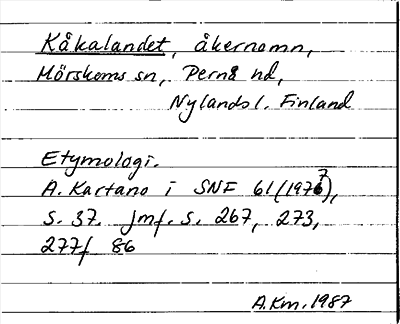 Kåkalandet, åkernamn,
Mörskoms sn, Pernå hd,
Nylands l. Finland
Etymologi.
A. Kartano i SNF 61 (1977),
s. 37. Jmf. s. 267, 273,
277f 86
A.Km. 1987